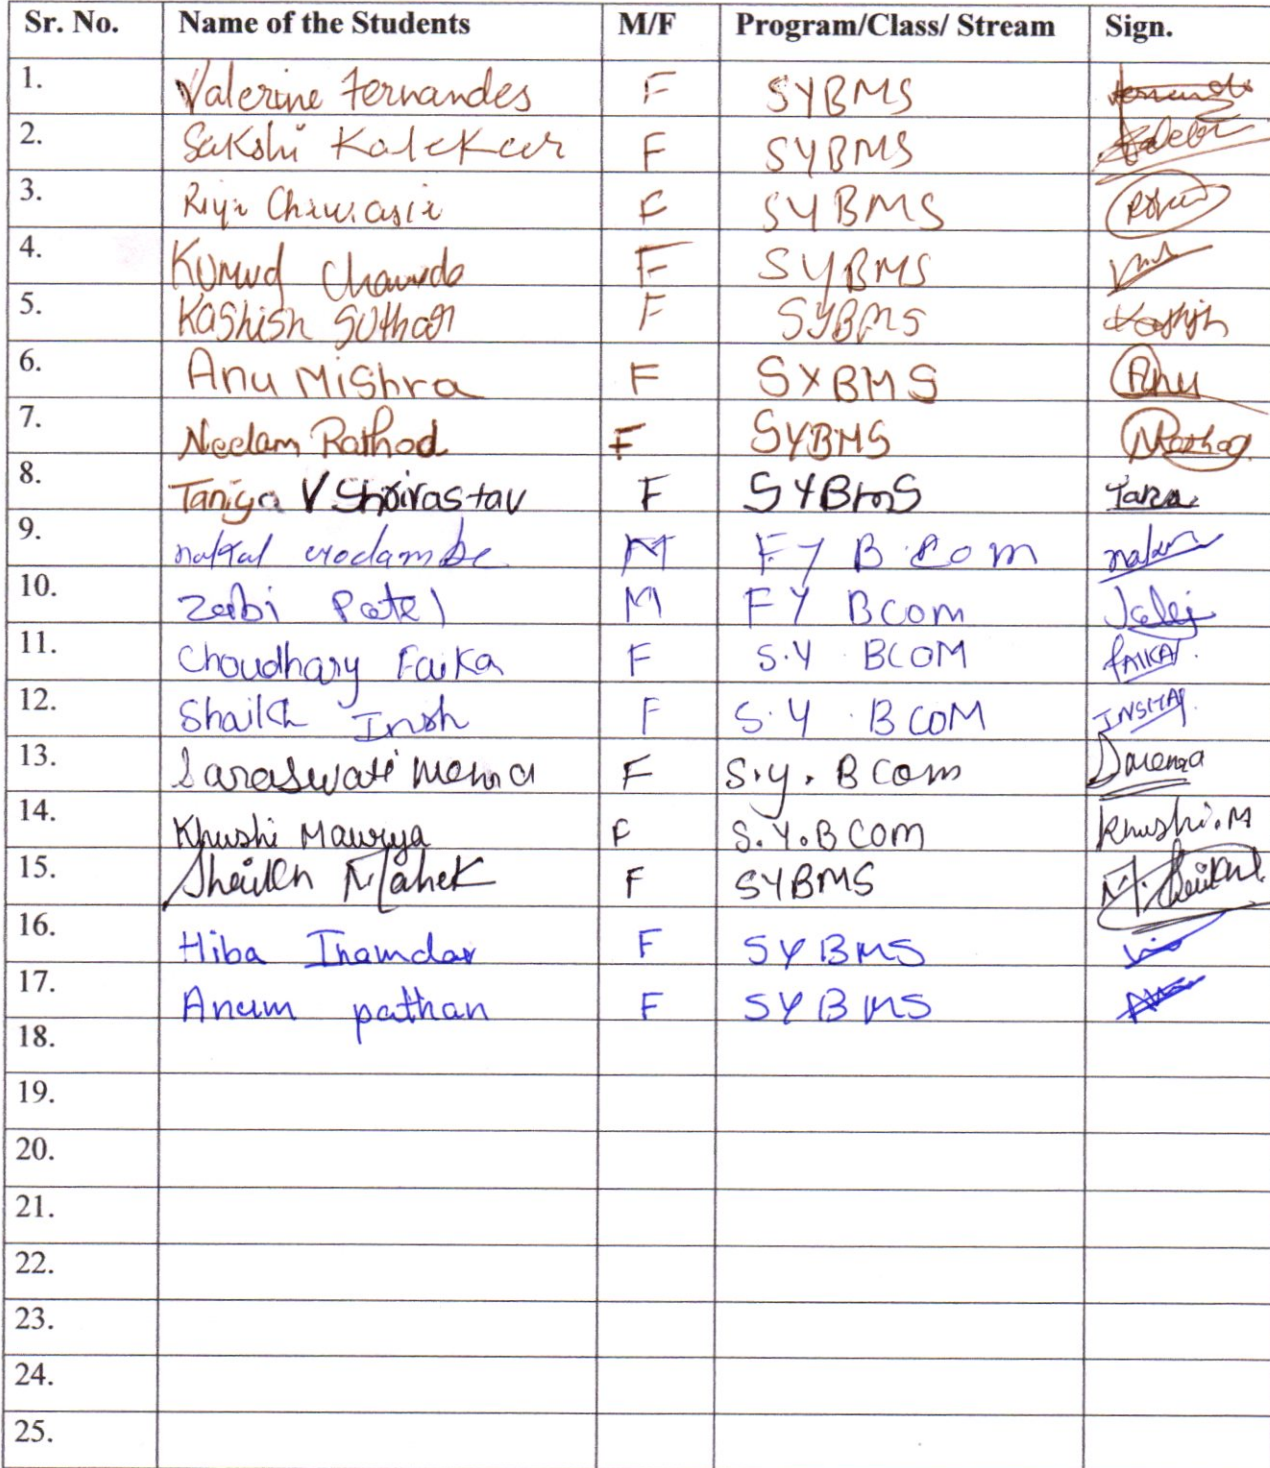 Sr. No. Name of the Students M/F Program/Class/ Stream Sign.
1. Valerine Fernandes F SYBMS
2. Sakshi Kalekar F SYBMS
3. Riya F SYBMS
4. Kumud Chawda F SYBMS
5. Kashish Suthar F SYBMS Kashish
6. Anu Mishra F SYBMS Anu
7. Neelam Rathod F SYBMS NRathod
8. Taniya V Shrivastav F SYBmS
9. M F Y B Com
10. Patel M FY BCOM
11. Choudhary Faika F S.Y BCOM FAIKA.
12. Shaikh Insh F S.Y. BCOM
13. Saraswati F S.y. BCom
14. Khushi Maurya F S.Y.BCOM Khushi.M
15. Shaikh Mahek F SYBMS M. Shaikh
16. Hiba Inamdar F SYBMS
17. Anum pathan F SYBMS
18.
19.
20.
21.
22.
23.
24.
25.